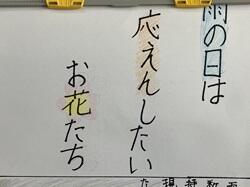 雨の日は
応えんしたい
お花たち